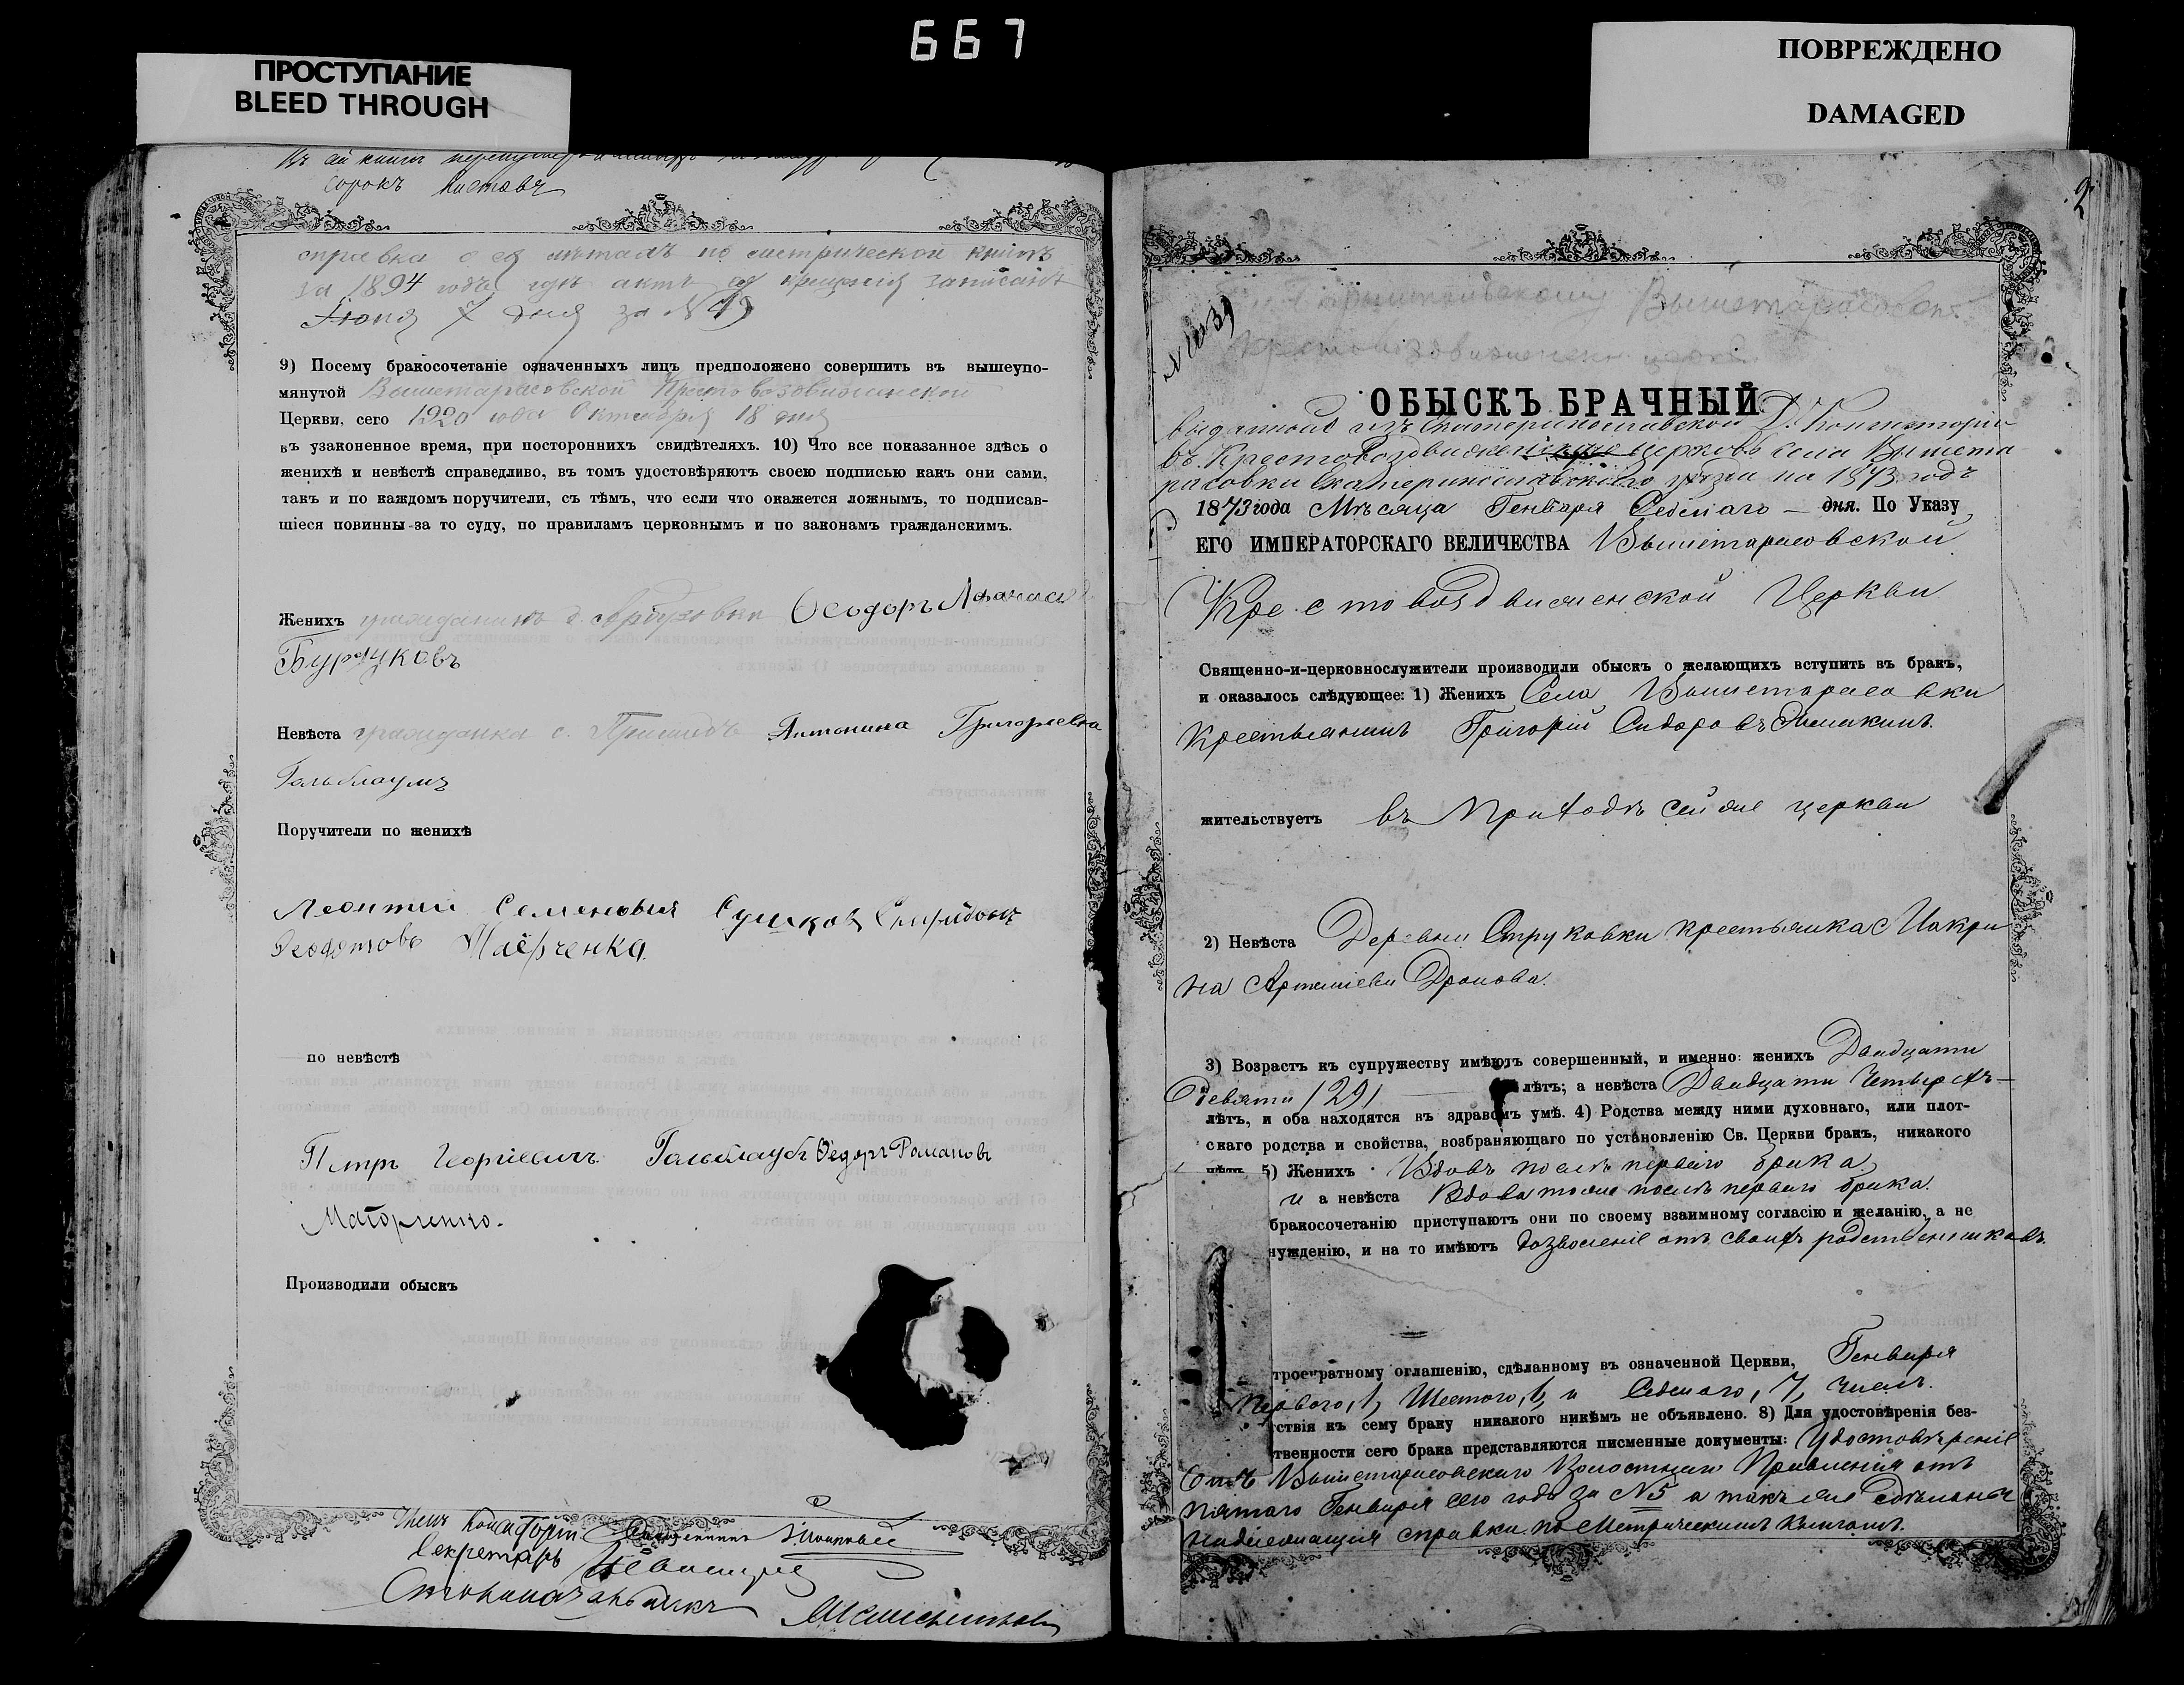 667
ПРОСТУПАНИЕ
BLEED THROUGH
ПОВРЕЖДЕНО
DAMAGED
сорокъ листовъ
справка о ея лѣтахъ по метрической книгѣ
за 1894 годъ гдѣ актъ ея крещенія записанъ
Іюня 7 дня за №
9) Посему бракосочетаніе означенныхъ лицъ предположено совершить въ вышеупо-
мянутой Вышетарасовской Кресто воздвиженской
Церкви, сего 1920 года Октября 18 дня
въ узаконенное время, при постороннихъ свидѣтеляхъ. 10) Что все показанное здѣсь о
женихѣ и невѣстѣ справедливо, въ томъ удостовѣряютъ своею подписью какъ они сами,
такъ и по каждомъ поручители, съ тѣмъ, что если что окажется ложнымъ, то подписав-
шіеся повинны за то суду, по правиламъ церковнымъ и по законамъ гражданскимъ.
Женихъ гражданинъ Ѳеодоръ
Невѣста гражданка с. Антонина Григорьевна
Гольблаумъ
Поручители по женихѣ
Леонтій Семеновъ Сушковъ Спиридонъ
по невѣстѣ
Петръ Георгіевичъ Федоръ Романовъ
Производили обыскъ
Членъ Консисторіи Священникъ
Секретарь
Столоначальникъ
2
ОБЫСКЪ БРАЧНЫЙ
выданной изъ Екатеринославской Д. Консисторіи
въ Крестовоздвиженскую церковь села Вышета
расовки Екатеринославскаго уѣзда на 1873 годъ
1873 года Мѣсяца Генваря Седмаго дня. По Указу
ЕГО ИМПЕРАТОРСКАГО ВЕЛИЧЕСТВА Вышетарасовской
Крестовоздвиженской Церкви
Священно-и-церковнослужители производили обыскъ о желающихъ вступить въ бракъ,
и оказалось слѣдующее: 1) Женихъ Села Вышетарасовки
Крестьянинъ Григорій Сидоровъ
жительствуетъ въ Приходѣ сей же церкви
2) Невѣста Деревни Струковки крестьянка Макри
на Артемiева Дронова.
3) Возрастъ къ супружеству имѣютъ совершенный, и именно: женихъ Двадцати
Девяти /29/ лѣтъ; а невѣста Двадцати Четырехъ
лѣтъ, и оба находятся въ здравомъ умѣ. 4) Родства между ними духовнаго, или плот-
скаго родства и свойства, возбраняющаго по установленію Св. Церкви бракъ, никакого
нѣтъ. 5) Женихъ Вдовъ послѣ перваго брака
и а невѣста Вдова тоже послѣ перваго брака.
бракосочетанію приступаютъ они по своему взаимному согласію и желанію, а не
нужденію, и на то имѣютъ дозволеніе отъ своихъ родственниковъ.
троекратному оглашенію, сдѣланному въ означенной Церкви, Генваря
Перваго, 1, Шестого, 6, и Седмаго, 7, чиселъ.
тствія къ сему браку никакого никѣмъ не объявлено. 8) Для удостовѣренія без-
твенности сего брака представляются писменные документы: Удостовѣреніе
отъ Вышетарасовскаго Волостнаго Правленія отъ
пятаго Генваря сего года за №5 а также сдѣланы
надлежащія справки по Метрическимъ Книгамъ.